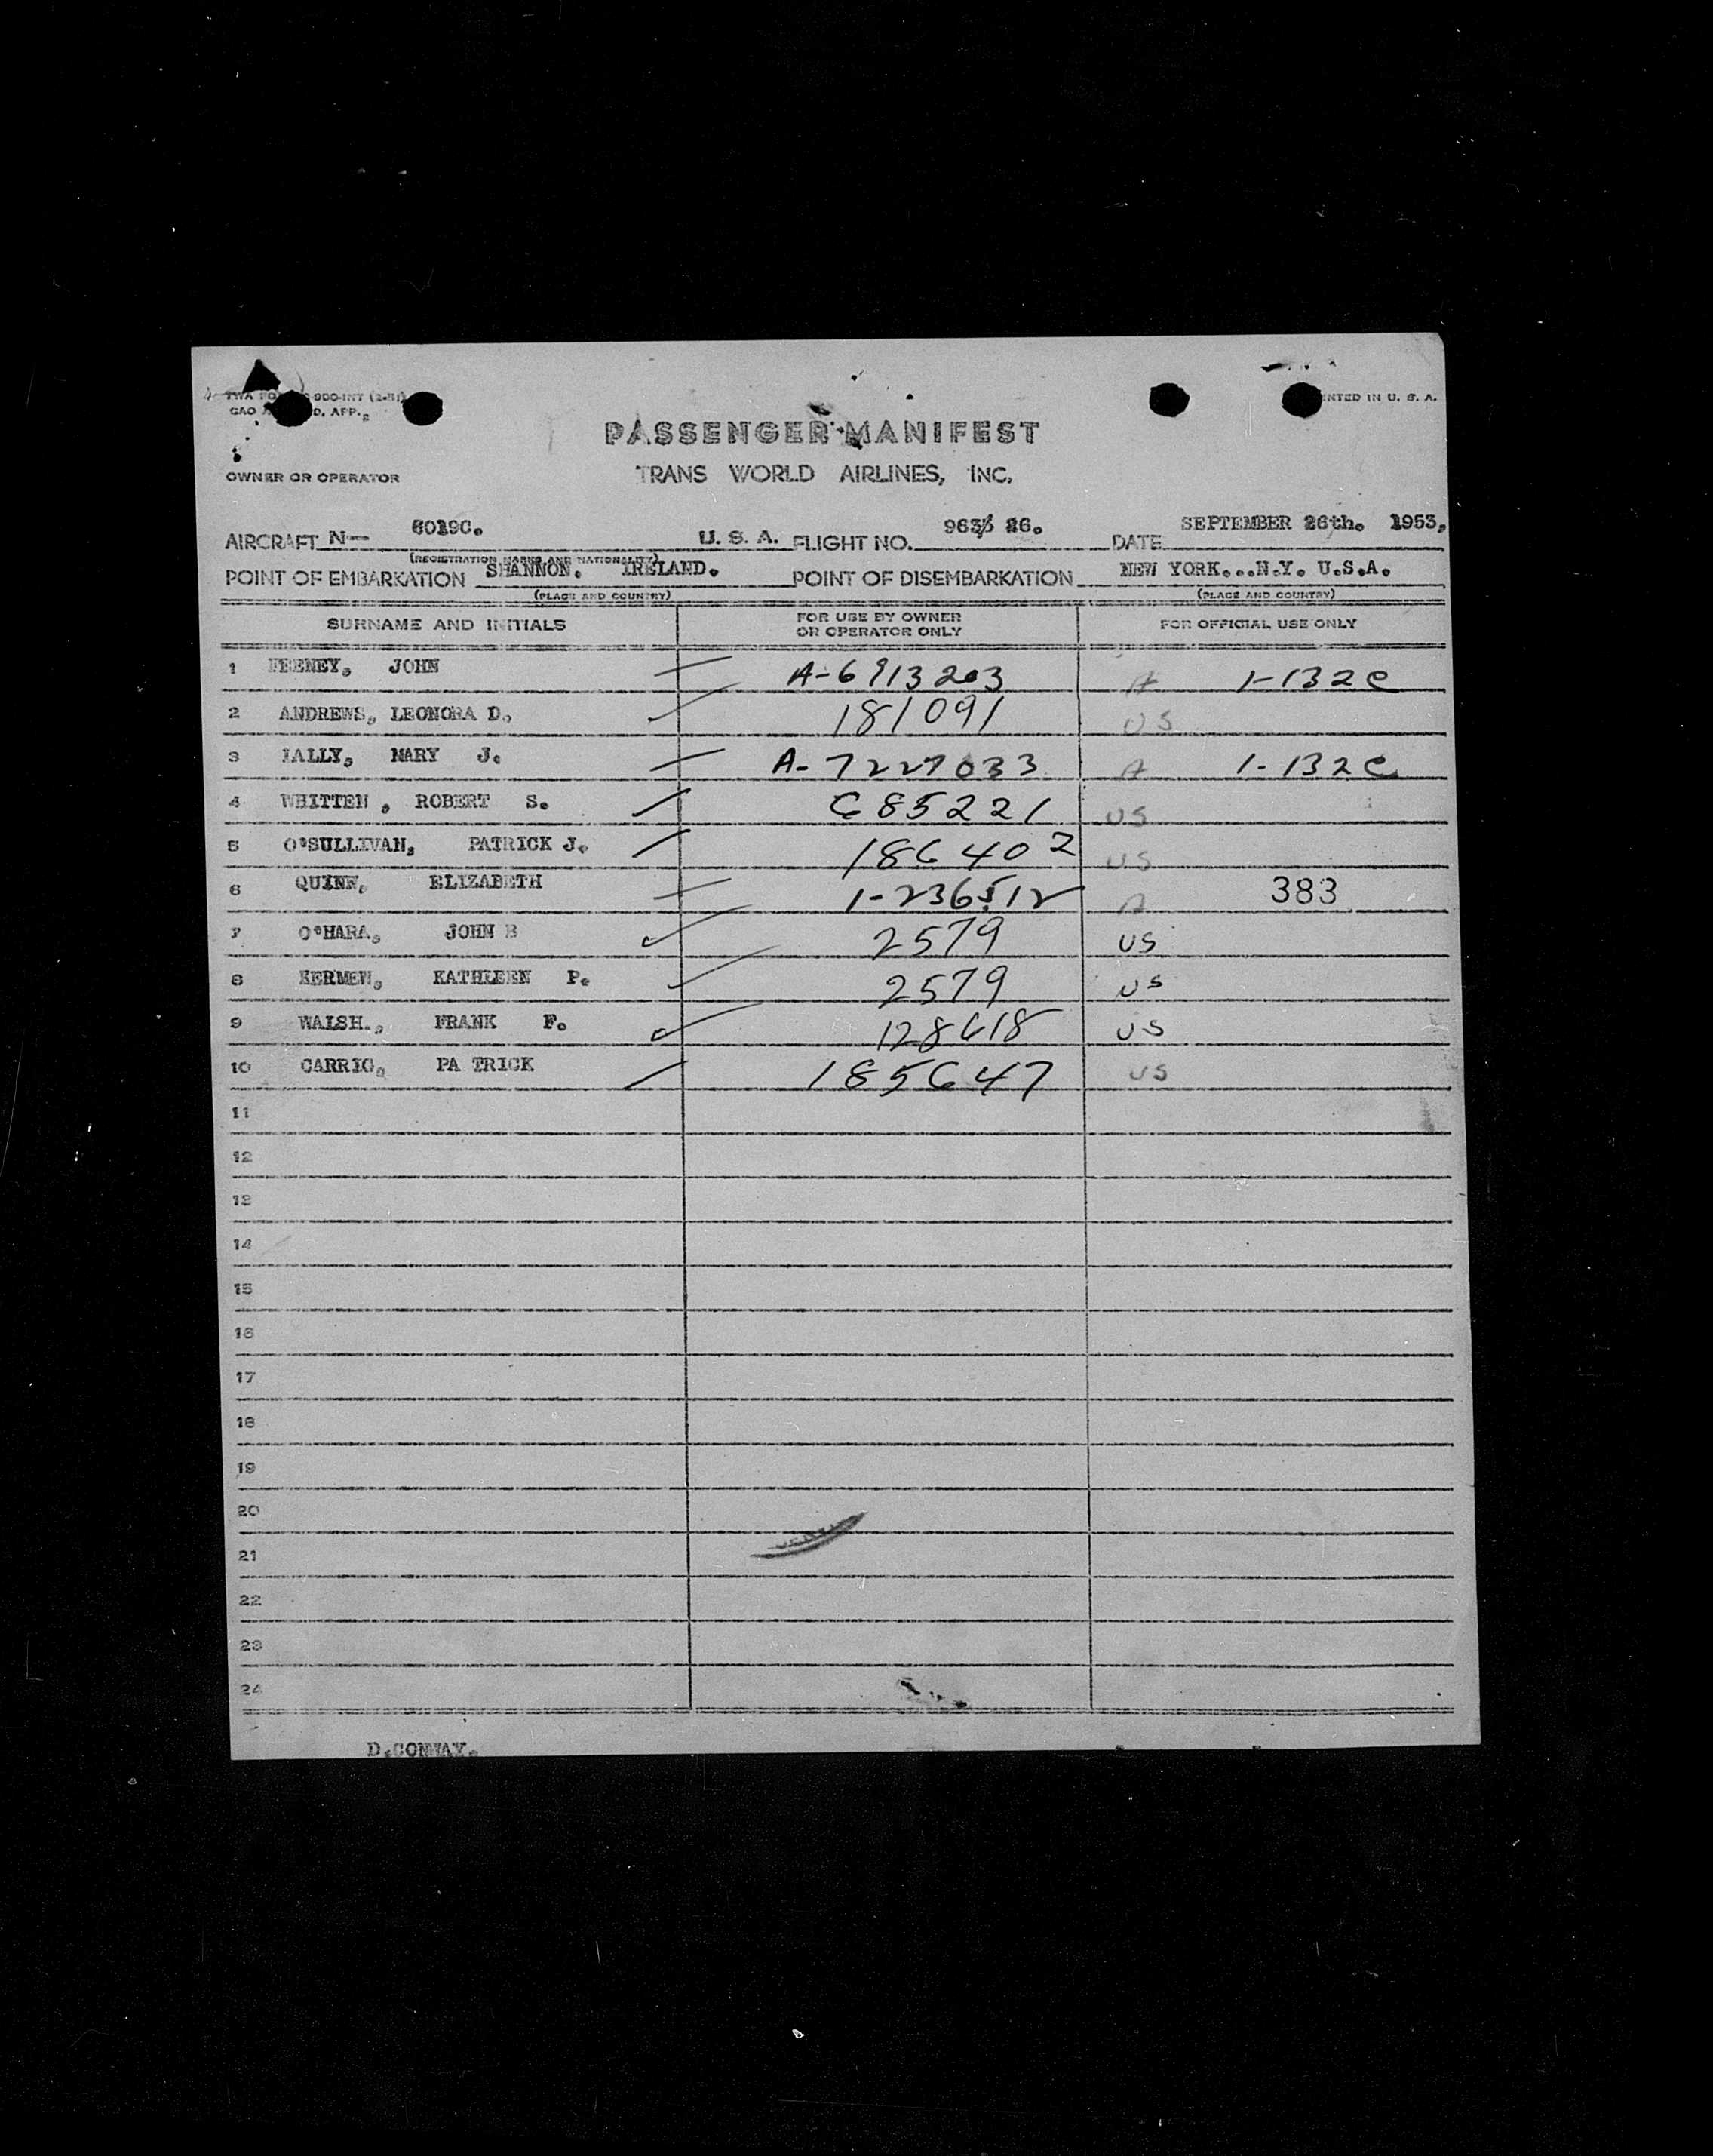 PRINTED IN U. S. A.
PASSENGER MANIFEST
OWNER OR OPERATOR TRANS WORLD AIRLINES, INC.
AIRCRAFT N— 6019C. U. S. A. FLIGHT NO. 26. DATE SEPTEMBER 26th. 1953,
(REGISTRATION MARKS AND NATIONALITY)
POINT OF EMBARKATION SHANNON. IRELAND. POINT OF DISEMBARKATION NEW YORK...N.Y. U.S.A.
(PLACE AND COUNTRY) (PLACE AND COUNTRY)
SURNAME AND INITIALS FOR USE BY OWNER OR OPERATOR ONLY FOR OFFICIAL USE ONLY
1 FEENEY, JOHN A-6913203 A 1-132c
2 ANDREWS, LEONORA D. 181091 US
3 LALLY, MARY J. A-7227033 A 1-132c
4 WHITTEN, ROBERT S. 685221 US
5 O'SULLIVAN, PATRICK J. 186402 US
6 QUINN, ELIZABETH 1-236512 A 383
7 O'HARA, JOHN B 2579 US
8 KATHLEEN P. 2579 US
9 WALSH., FRANK F. 128618 US
10 CARRIG, PA TRICK 185647 US
11
12
13
14
15
16
17
18
19
20
21
22
23
24
D.CONWAY.